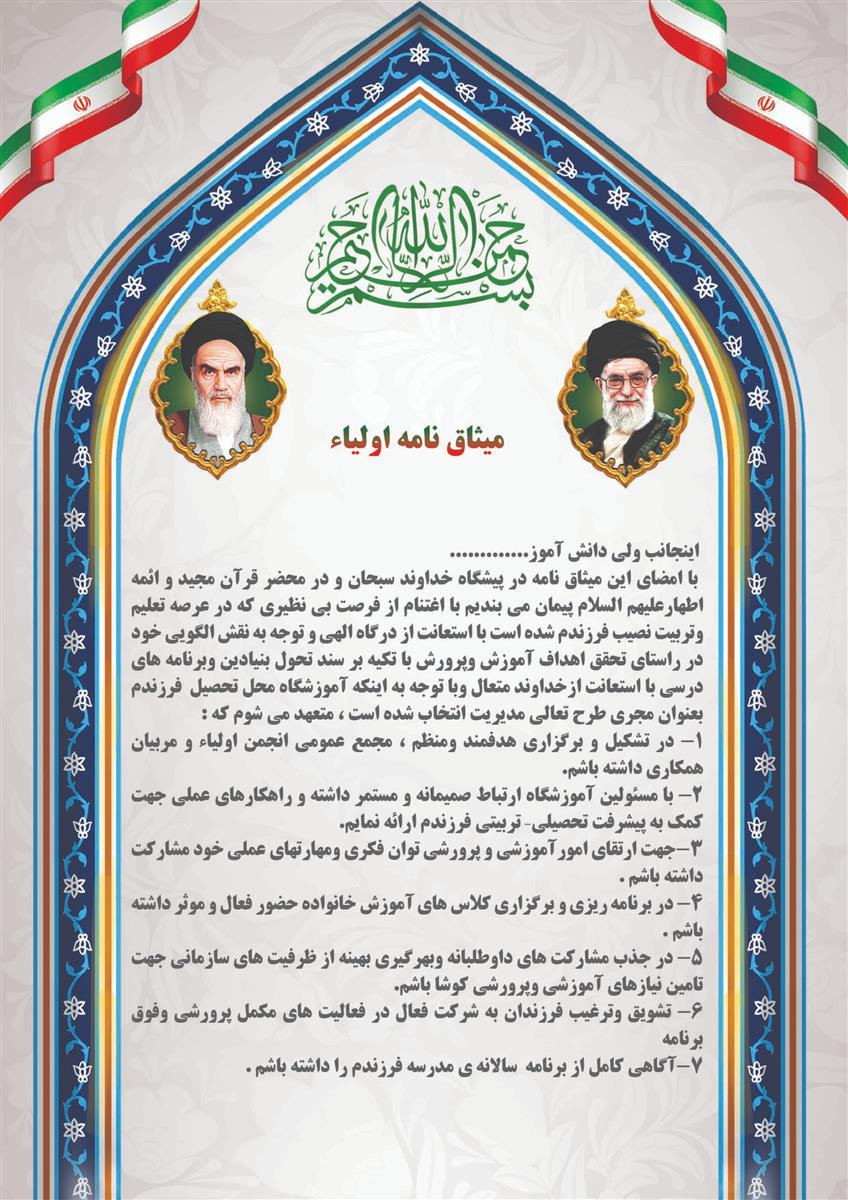 بسم الله الرحمن الرحیم
میثاق نامه اولیاء
اینجانب ولی دانش آموز.............
با امضای این میثاق نامه در پیشگاه خداوند سبحان و در محضر قرآن مجید و ائمه
اطهارعلیهم السلام پیمان می بندیم با اغتنام از فرصت بی نظیری که در عرصه تعلیم
وتربیت نصیب فرزندم شده است با استعانت از درگاه الهی و توجه به نقش الگویی خود
در راستای تحقق اهداف آموزش وپرورش با تکیه بر سند تحول بنیادین وبرنامه های
درسی با استعانت ازخداوند متعال وبا توجه به اینکه آموزشگاه محل تحصیل فرزندم
بعنوان مجری طرح تعالی مدیریت انتخاب شده است ، متعهد می شوم که :
۱- در تشکیل و برگزاری هدفمند ومنظم ، مجمع عمومی انجمن اولیاء و مربیان
همکاری داشته باشم.
۲- با مسئولین آموزشگاه ارتباط صمیمانه و مستمر داشته و راهکارهای عملی جهت
کمک به پیشرفت تحصیلی- تربیتی فرزندم ارائه نمایم.
۳-جهت ارتقای امورآموزشی و پرورشی توان فکری ومهارتهای عملی خود مشارکت
داشته باشم .
۴- در برنامه ریزی و برگزاری کلاس های آموزش خانواده حضور فعال و موثر داشته
باشم .
۵- در جذب مشارکت های داوطلبانه وبهرگیری بهینه از ظرفیت های سازمانی جهت
تامین نیازهای آموزشی وپرورشی کوشا باشم.
۶- تشویق وترغیب فرزندان به شرکت فعال در فعالیت های مکمل پرورشی وفوق
برنامه
۷-آگاهی کامل از برنامه سالانه ی مدرسه فرزندم را داشته باشم .